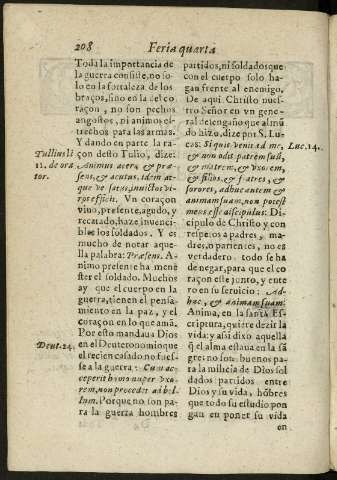 208
Feria quarta
Toda la importancia de
la guerra consiste, no so-
lo en la fortaleza de los
braços, sino en la del co-
raçon, no son pechos
angostos, ni animos es-
trechos para las armas.
Y dando en parte la ra-
çon desto Tulio, dize:
Animus acer, & præ-
sens, & acutus, idem at-
que versatus, inuictos vi-
ros efficit. Vn coraçon
viuo, presente, agudo, y
recatado, haze inuenci-
bles los soldados. Y es
mucho de notar aquella
palabra: Præsens. A-
nimo presente ha mene-
ster el soldado. Muchos
ay que el cuerpo en la
guerra, tienen el pensa-
miento en la paz, y el
coraçon en lo que amã.
Por esto mandaua Dios
en el Deuteronomio que
el recien casado no fues-
se a la guerra: Cum ac-
ceperit homo nuper vxo-
rem, non procedet ad bel-
lum. Porque no son pa-
ra la guerra hombres
Tullius li.
2. de ora
tor.
Deut. 24.
partidos, ni soldados que
con el cuerpo solo ha-
gan frente al enemigo.
De aqui Christo nues-
tro Señor en vn gene-
ral desengaño que al mũ-
do hizo, dize por S. Lu-
cas: Si quis venit ad me,
& non odit patrem suũ,
& matrem, & vxorem,
& filios, & fratres, &
sorores, adhuc autem &
animam suam, non potest
meus esse discipulus: Di-
cipulo de Christo y con
respetos a padres, ma-
dres, o parientes, no es
verdadero: todo se ha
de negar, para que el co
raçon este junto, y ente
ro en su seruicio: Ad-
huc, & animam suam:
Anima, en la santa Es-
criptura, quiere dezir la
vida: y assi dixo aquella
q̃ el alma estaua en la sã
gre: no son buenos pa-
ra la milicia de Dios sol
dados partidos entre
Dios y su vida, hõbres
que todo su estudio pon
gan en poner su vida
en
Luc. 14.